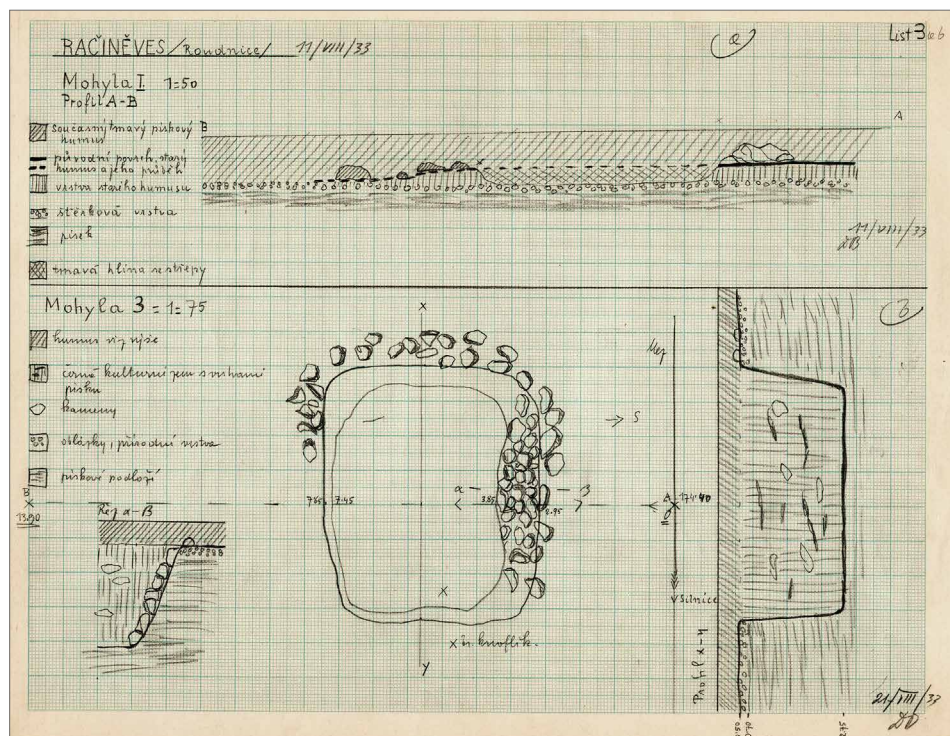 RAČINĚVES /Roudnice/ 11/VIII/33
a
List 3
Mohyla I. 1=50
Profil A-B
současný tmavý pískový
humus
původní povrch, starý
humus a jeho průběh
vrstva starého humusu
štěrková vrstva
písek
tmavá hlína se střepy
B
A
11/VIII/33
Mohyla 3 = 1=75
b
humus viz výše
černá kulturní zem s vrstvami
písku
kameny
oblásky, přírodní vrstva
pískové podloží
B
X
13.90
Řez α-β
X
Mez
S
α
β
785
745
385
2.95
A
174.40
silnice
X
X br. knoflík.
Y
Profil x-y
21/VIII/33